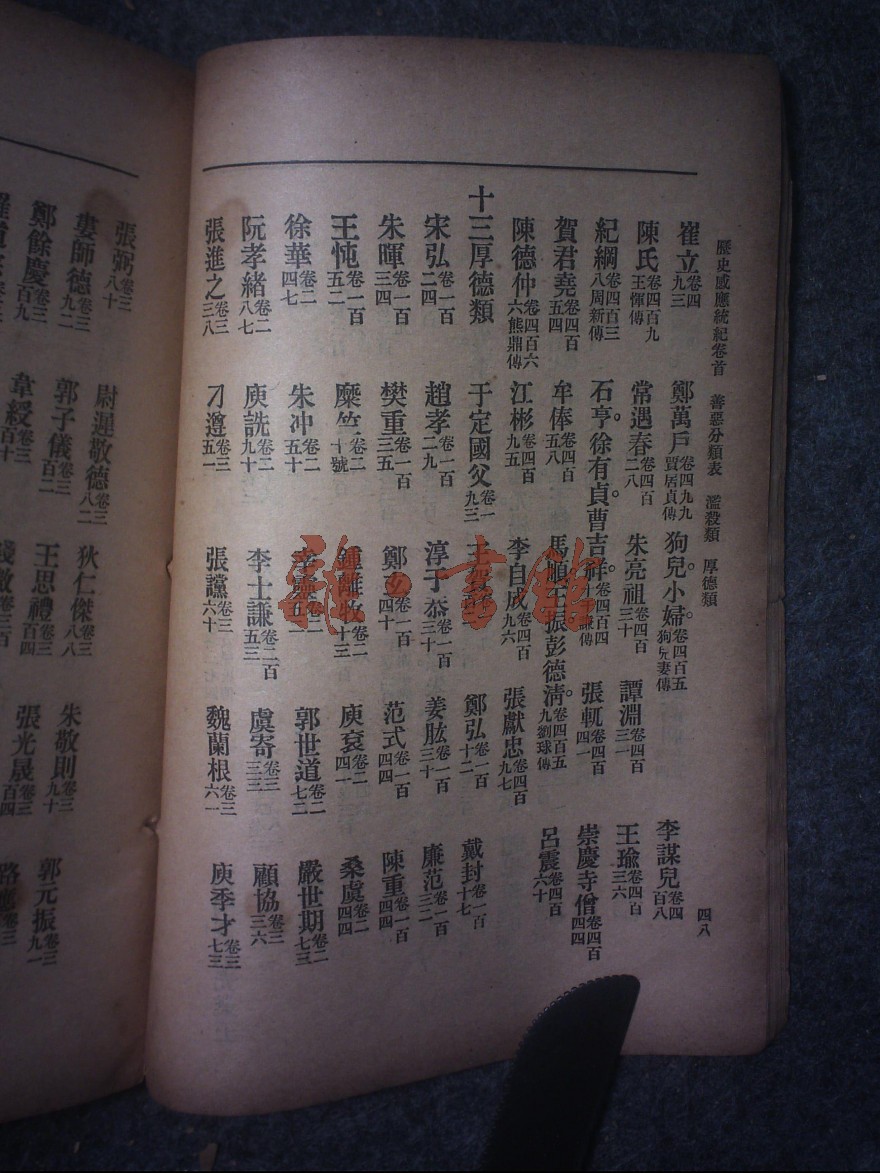 歷史感應統紀卷首 善惡分類表 濫殺類 厚德類 四八
崔立卷四九三 鄭萬戶卷四九九賀居貞傳 狗兒小婦卷四百五狗兒妻傳 李謀兒卷四百八
陳氏卷四百九王惲傳 常遇春卷四百二八 朱亮祖卷四百三十 譚淵卷四百三一 王瑜卷四百三六
紀綱卷四百三八周新傳 石亨。徐有貞。曹吉祥卷四百四 張軏卷四百四一 崇慶寺僧卷四百四四
賀君堯卷四百五四 牟俸卷四百五八 馬順王振彭德清。卷四百五九劉球傳 呂震卷四百六十
陳德仲卷四百六六熊鼎傳 江彬卷四百九五 李自成卷四百九六 張獻忠卷四百九七
十三厚德類 于定國父卷一九三 鄭弘卷一百十二 戴封卷一百十七
宋弘卷一百二四 趙孝卷一百二九 淳于恭卷一百三十 姜肱卷一百三十 廉范卷一百三二
朱暉卷一百三四 樊重卷一百三五 鄭玄卷一百四十 范式卷一百四四 陳重卷一百四四
王忳卷一百五二 麋竺卷二十號 鍾離牧卷二十三 庾袞卷二四一 桑虞卷二四四
徐華卷二四七 朱冲卷二五十 郭世道卷二七二 嚴世期卷二七三
阮孝緒卷二八七 庾詵卷二九十 李士謙卷二百五三 虞寄卷三三三 顧協卷三三六
張進之卷三三八 刁遵卷三五一 張讜卷三六十 魏蘭根卷三六一 庾季才卷三七三
張弼卷三八十 尉遲敬德卷三八二 狄仁傑卷三八八 朱敬則卷三九十 郭元振卷三九一
婁師德卷三九二 郭子儀卷三百二 王思禮卷三百四 張光晟卷三百四
鄭餘慶卷三百九 韋綬卷三百十
雜·書館